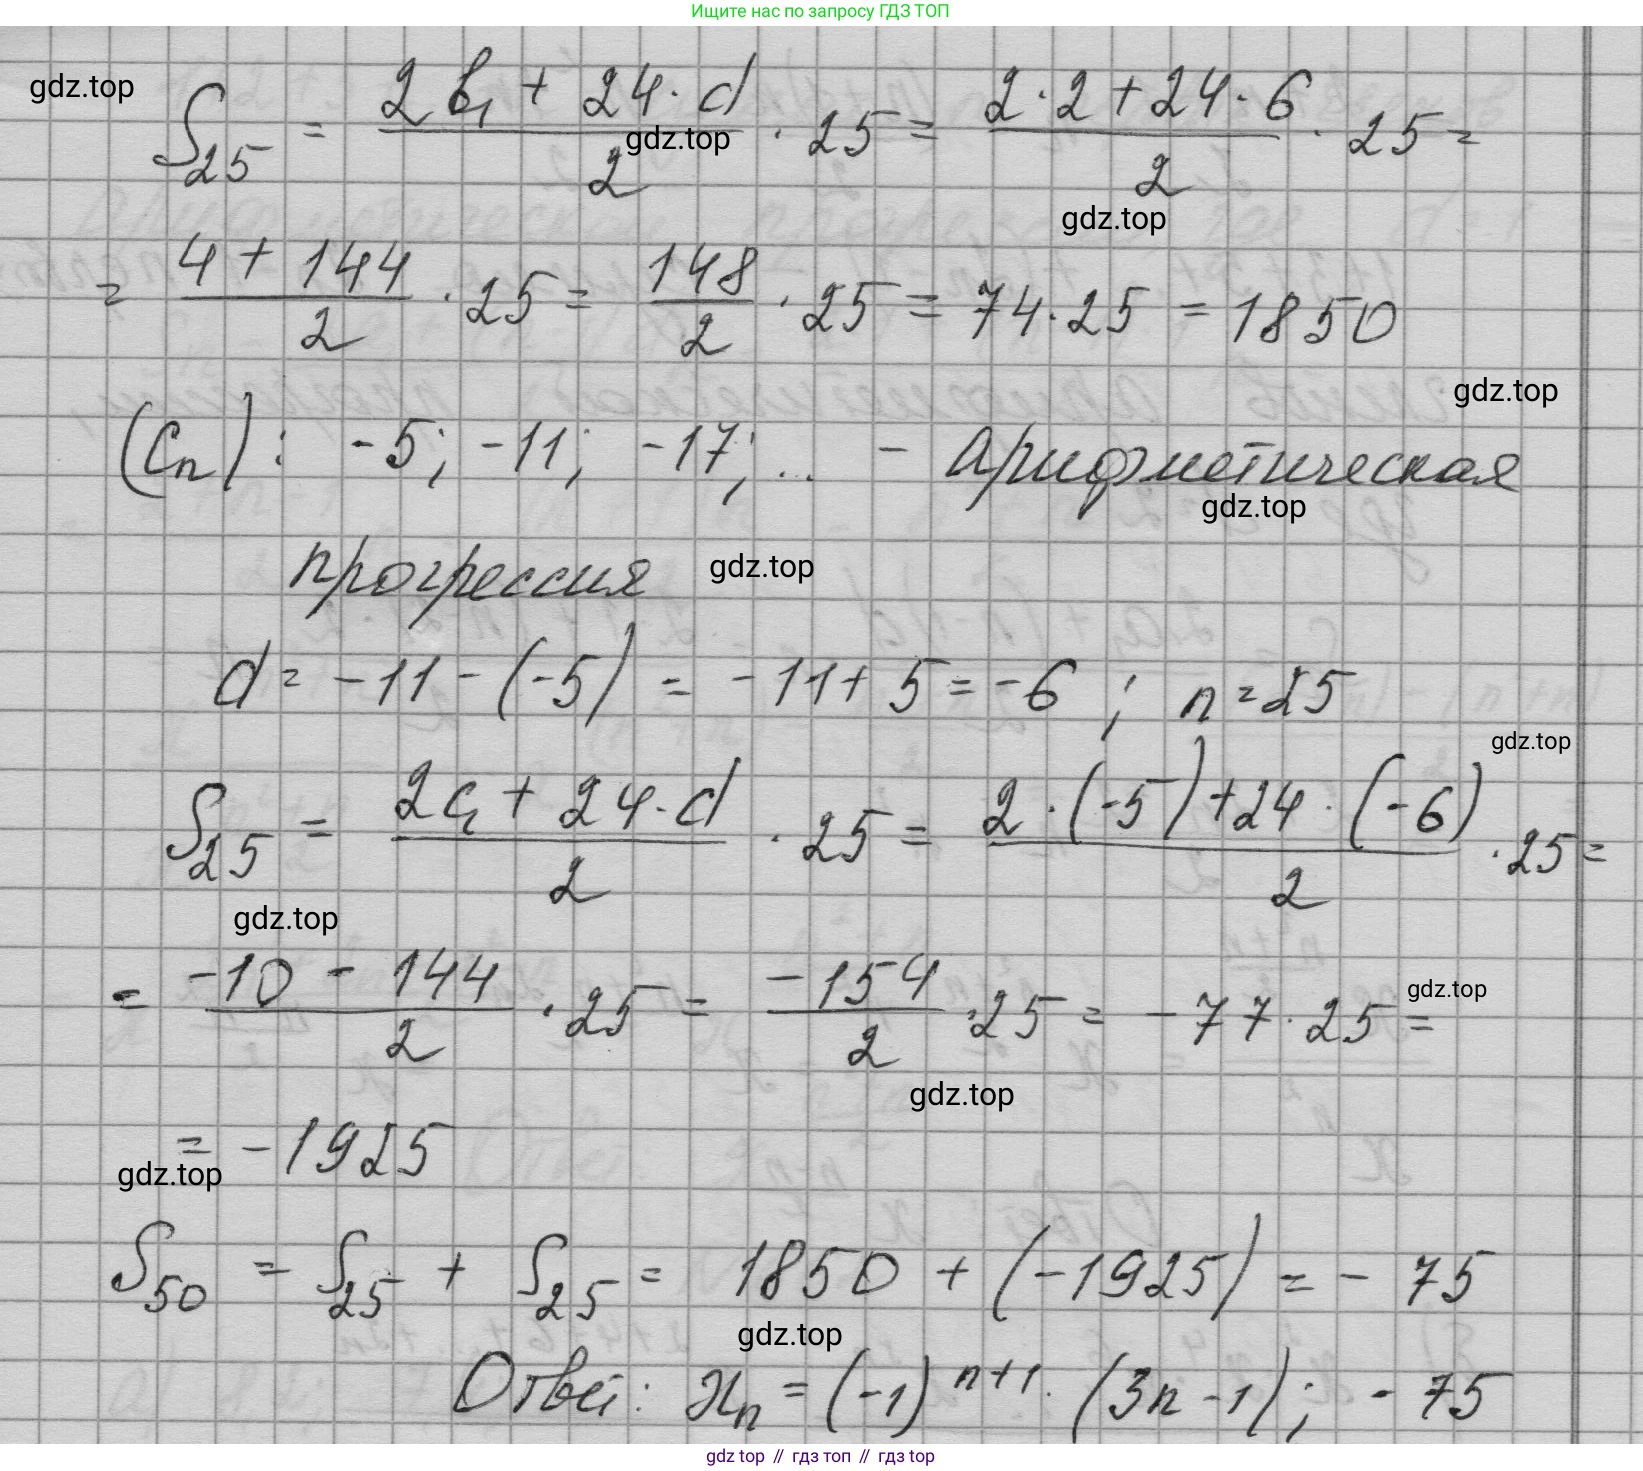 Ищите нас по запросу ГДЗ ТОП
gdz.top
S₂₅ = (2b₁ + 24·d)/2 · 25 = (2·2+24·6)/2 · 25 =
gdz.top
gdz.top
= (4+144)/2 · 25 = 148/2 · 25 = 74·25 = 1850
gdz.top
(cₙ): -5; -11; -17; ... - арифметическая
gdz.top
прогрессия gdz.top
d = -11-(-5) = -11+5 = -6; n=25
gdz.top
S₂₅ = (2c₁ + 24·d)/2 · 25 = (2·(-5)+24·(-6))/2 · 25 =
gdz.top
= (-10 - 144)/2 · 25 = -154/2 · 25 = -77·25 =
gdz.top
gdz.top
= -1925
gdz.top
S₅₀ = S₂₅ + S₂₅ = 1850 + (-1925) = -75
gdz.top
Ответ: xₙ = (-1)ⁿ⁺¹·(3n-1); -75
gdz top // гдз топ // гдз top